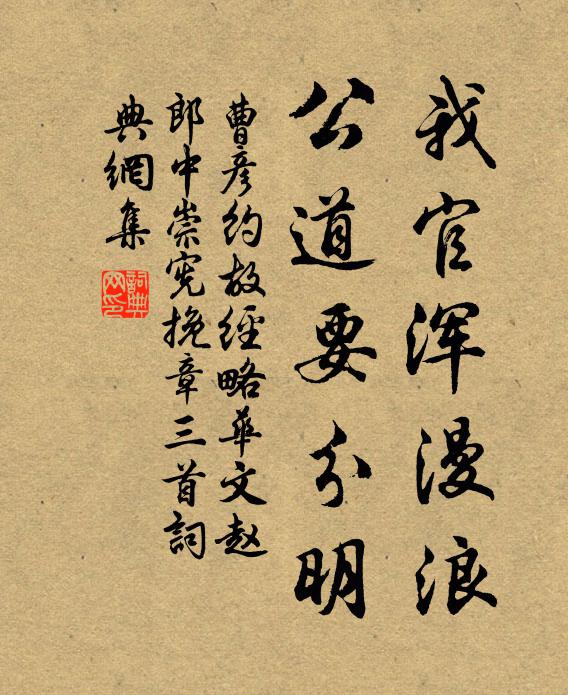 我官浑漫浪
公道要分明
曹彦约故經略華文赵
郎中崇宪挽章三首詞
典網集
詞典网印